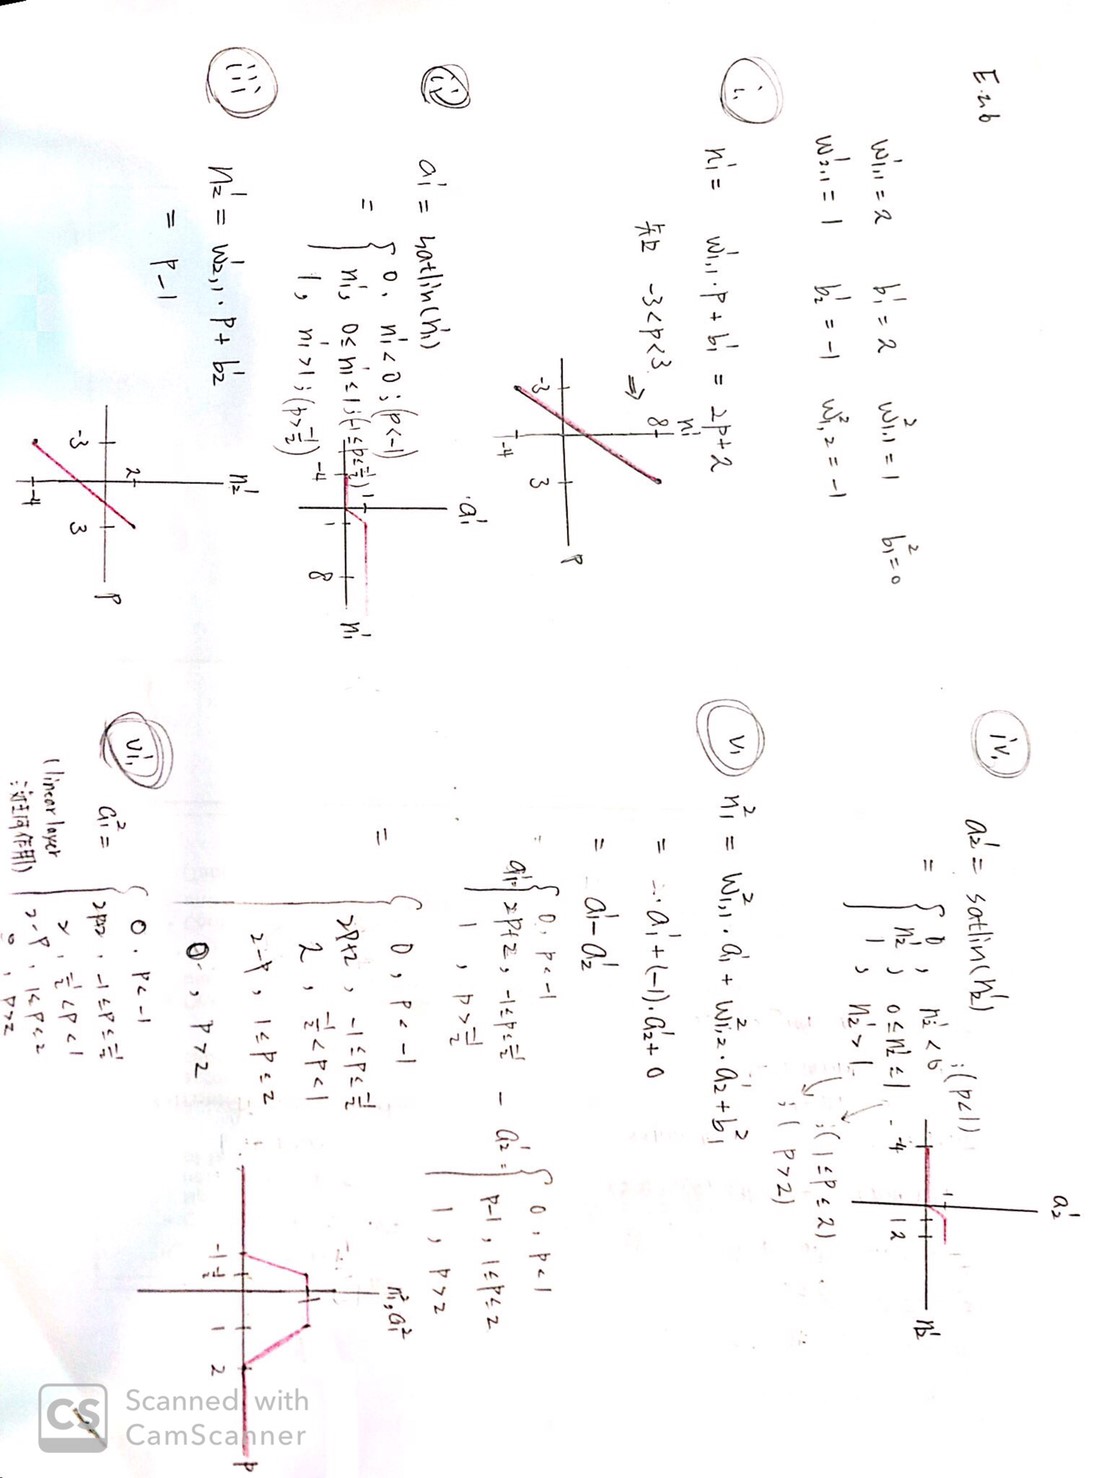 E2.6
w¹₁,₁ = 2 b¹₁ = 2 w²₁,₁ = 1 b²₁ = 0
w¹₂,₁ = 1 b¹₂ = -1 w²₁,₂ = -1
i.
n¹₁ = w¹₁,₁ · p + b¹₁ = 2p+2
-3<p<3 ⇒
n¹₁
8
-3
3
-4
p
ii
a¹₁ = satlin(n¹₁)
= { 0, n¹₁<0 ; (p<-1)
n¹₁, 0≤n¹₁≤1 ; (-1≤p≤-½)
1, n¹₁>1 ; (p>-½)
a¹₁
-4
1
1
8
n¹₁
iii
n¹₂ = w¹₂,₁ · p + b¹₂
= p-1
n¹₂
2
-3
3
-4
p
iv.
a¹₂ = satlin(n¹₂)
= { 0, n¹₂<0 ; (p<1)
n¹₂, 0≤n¹₂≤1 ; (1≤p≤2)
1, n¹₂>1 ; (p>2)
a¹₂
-4
1
1 2
n¹₂
v.
n²₁ = w²₁,₁ · a¹₁ + w²₁,₂ · a¹₂ + b²₁
= a¹₁+(-1)·a¹₂+0
= a¹₁-a¹₂
= a¹₁= { 0, p<-1 - a¹₂= { 0, p<1
2p+2, -1≤p≤-½ p-1, 1≤p≤2
1, p>-½ 1, p>2
= { 0, p<-1
2p+2, -1≤p≤-½
2, -½<p<1
2-p, 1≤p≤2
0, p>2
n²₁, a²₁
1
-1 -½
1
2
p
vi.
a²₁ = { 0, p<-1
2p+2, -1≤p≤-½
-½<p<1
2-p, 1≤p≤2
0, p>2
(linear layer
CS
Scanned with
CamScanner